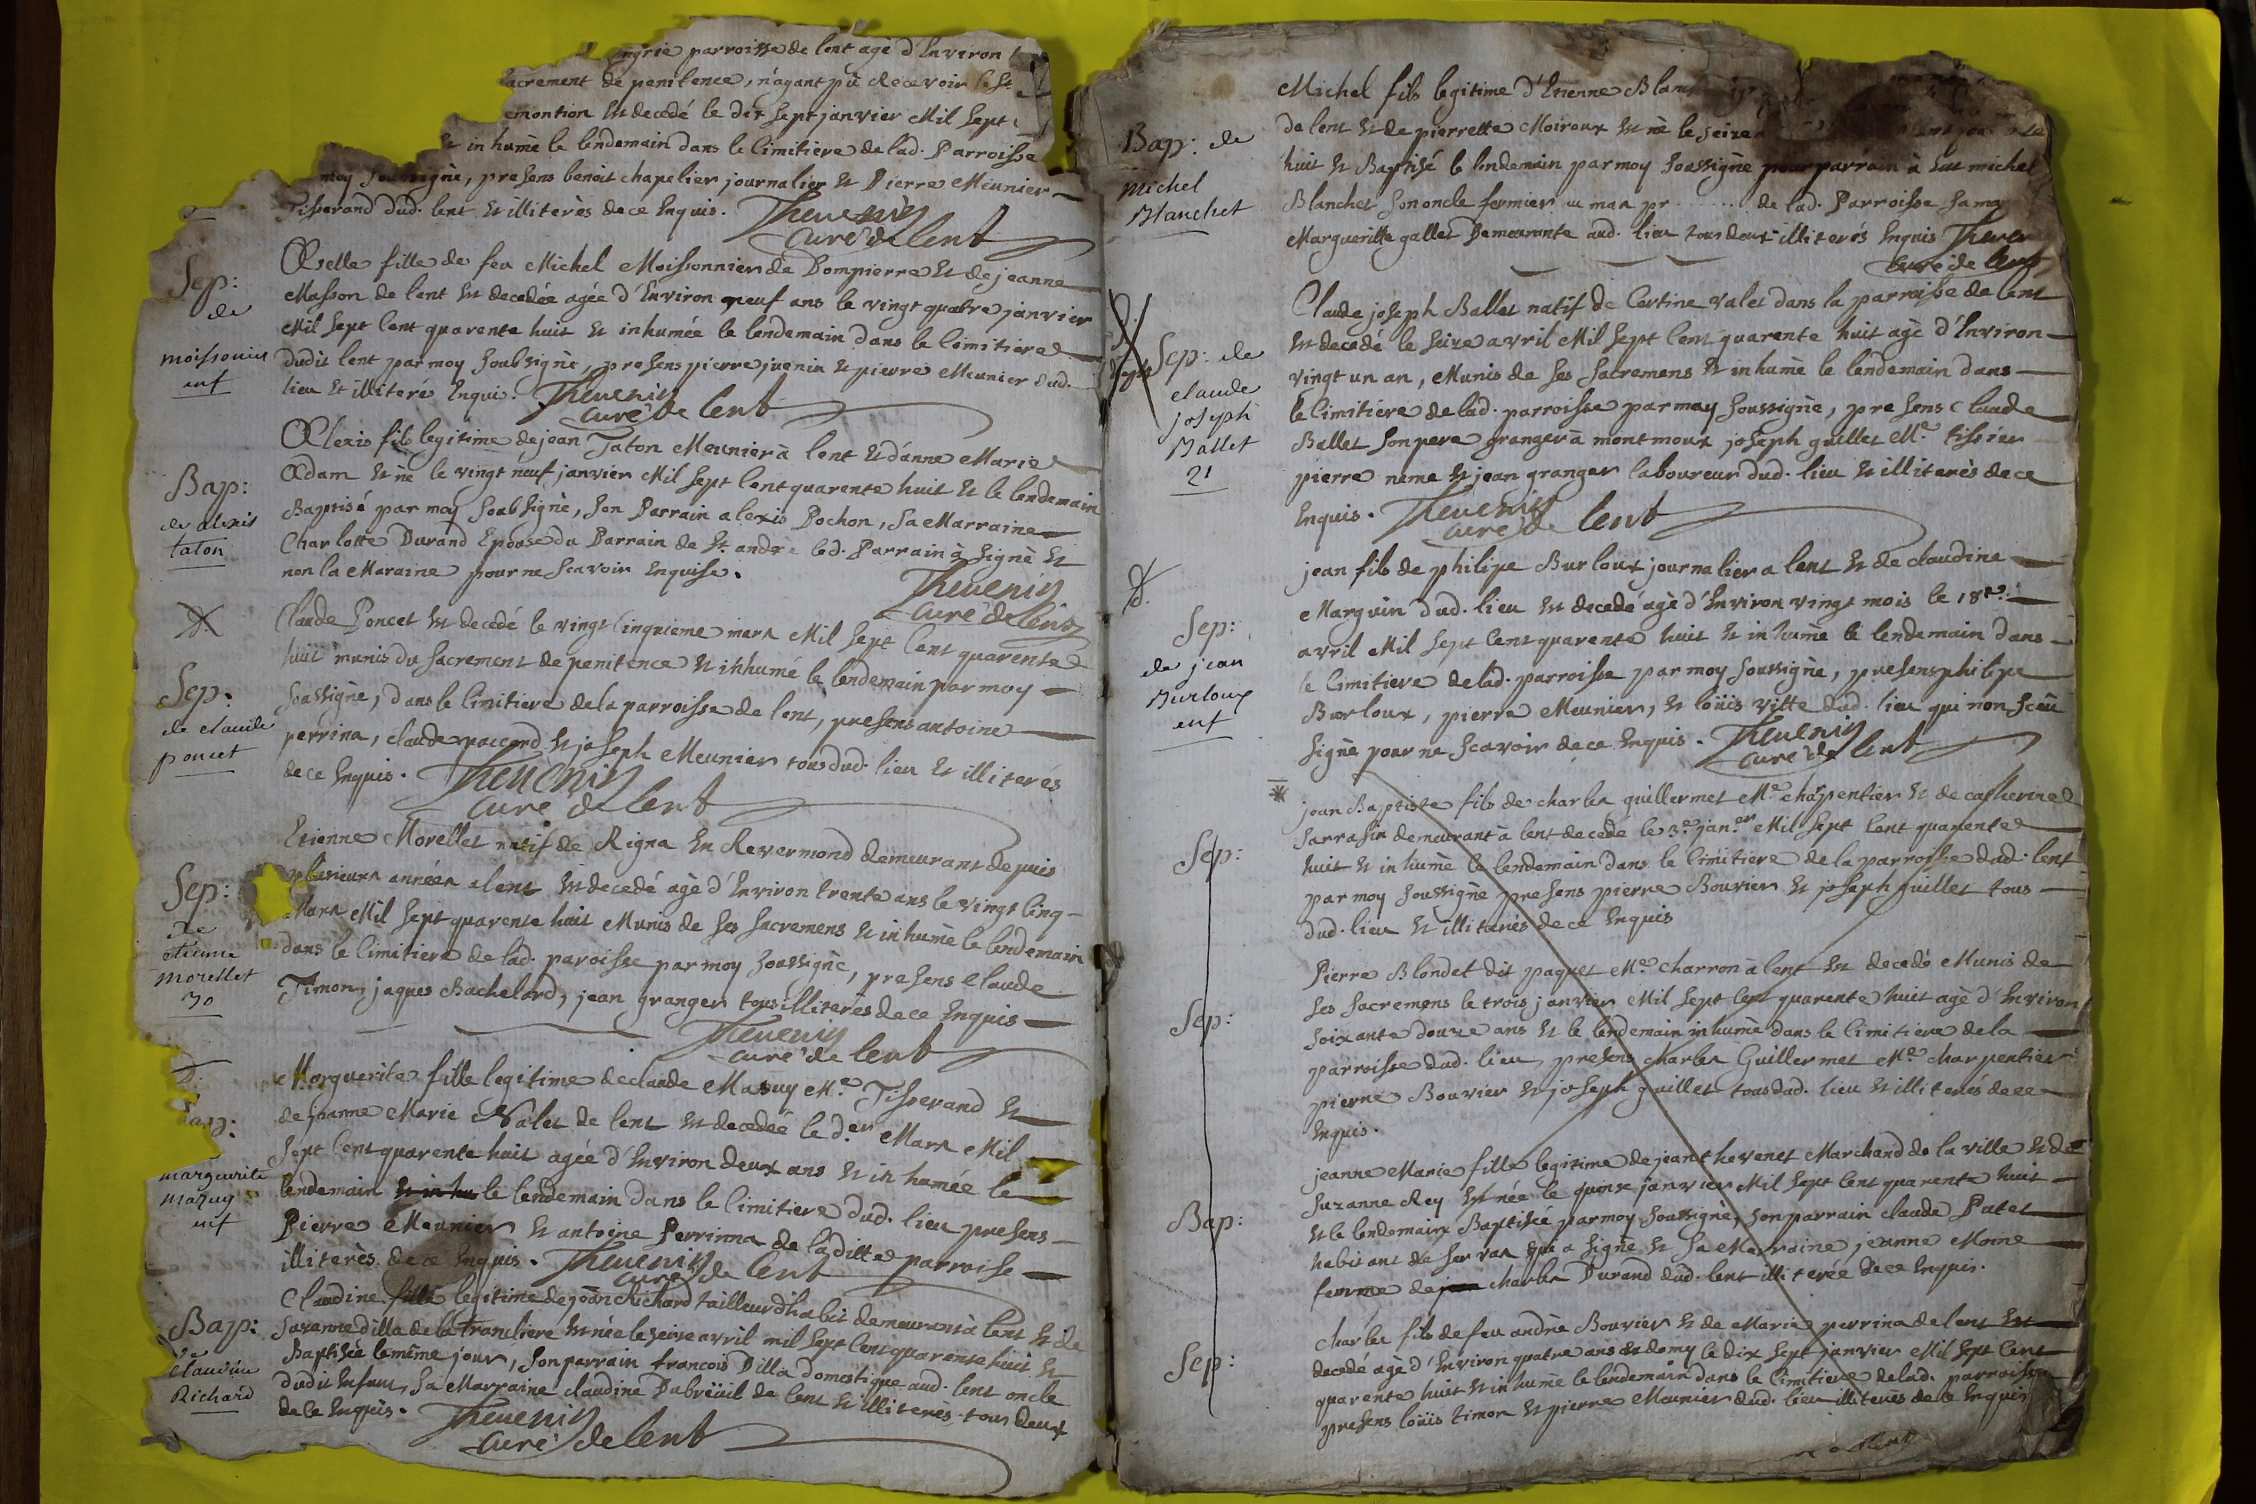 parroisse de lent agè d'Environ
sacrement de penitence, n'ayant pû Recevoir le St
est decedé le dix sept janvier Mil Sept
inhumè le lendemain dans le Cimitiere de lad. Parroisse
moy soussignè, presens benoit chapelier journalier et Pierre Meunier
Tisserand dud. lent et illiterès de ce Enquis.
Thevenin
curé de lent
Sep:
de
moissonier
enf
fille de feu Michel Moissonnier de Dompierre et de jeanne
Masson de lent est decedée agée d'Environ neuf ans le vingt quatre janvier
Mil Sept Cent quarente huit et inhumée le lendemain dans le Cimitiere
dudit lent par moy Soubsignè, presens pierre juenin et pierre Meunier dud.
lieu et illiterè Enqui.
Thevenin
curé de lent
Bap:
de alexis
taton
Alexis fils legitime de jean Taton Meunier à lent et d'anne Marie
Adam est nè le vingt neuf janvier Mil Sept Cent quarente huit et le lendemain
Baptisé par moy Soubsignè, Son Parrain alexis Pochon, Sa Marraine
Charlotte Durand Epouse du Parrain de St. andrè led. Parrain à Signè et
non la Maraine pour ne Scavoir Enquise.
Thevenin
curé de lent
D.
Sep:
de claude
poncet
Claude Poncet est decedé le vingt Cinquieme mars Mil Sept Cent quarente
huit munis du Sacrement de penitence et inhumé le lendemain par moy
Soussignè, dans le Cimitiere de la parroisse de lent, presens antoine
perrina, claude paccord et joseph Meunier tous dud. lieu et illiterés
de ce Enquis.
Thevenin
curé de lent
Sep:
de
etienne
morellet
30
Etienne Morellet natif de Rigna En Revermond demeurant depuis
plusieurs années a lent est decedé agè d'Environ trente ans le vingt Cinq
Mars Mil Sept quarente huit Munis de Ses Sacremens et inhumè le lendemain
dans le Cimitiere de lad. paroisse par moy Soussignè, presens Claude
Timon, jaques Bachelard, jean granger tous illiterès de ce Enquis
Thevenin
curé de lent
D.
Sep:
marguerite
mazuy
enf
Marguerite fille legitime de claude Mazuy Me. Tisserand et
de jeanne Marie Valet de lent est decedée le d.er Mars Mil
Sept Cent quarente huit agée d'Environ deux ans et inhumée le
lendemain et inhu le lendemain dans le Cimitiere dud. lieu presens
Pierre Meunier et antoine Perrinna de laditte parroise
illiterès de ce Enquis.
Thevenin
curé de lent
Bap:
de
claudine
Richard
Claudine fille legitime de jean Richard tailleur d'habit demeurant à lent et de
Suzanne dilla de la trancliere est née le Seize avril mil Sept Cent quarente huit et
Baptisée le même jour, Son parrain francois Dilla domestique aud. lent oncle
dudit Enfant, Sa Marraine claudine Dubreüil de lent et illiterés tous deux
de ce Enquis.
Thevenin
curé de lent
Bap: de
michel
Blanchet
Michel fils legitime d'Etienne
de lent et de pierrette Moiroux est nè le seize
huit et Baptisé le lendemain par moy Soussignè pour parrain à Eut michel
Blanchet Son oncle fermier de lad. Parroisse Sa
Marguerite gallet Demeurante aud. lieu tous deux illiterés Enquis
Thevenin
Curé de lent
Sep: de
claude
joseph
Ballet
21
Claude joseph Ballet natif de Certine valet dans la parroisse de lent
est decedé le Seize avril Mil Sept Cent quarente huit agè d'Environ
vingt un an, Munis de Ses Sacremens et inhumè le lendemain dans
le Cimitiere de lad. parroisse par moy Soussignè, presens Claude
Ballet Son pere granger à montmoux joseph guillet Me. tissier
pierre neme et jean granger laboureur dud. lieu et illiterès de ce
Enquis.
Thevenin
curé de lent
D.
Sep:
de jean
Burloux
enf
jean fils de philipe Burloux journalier a lent et de claudine
Marguin dud. lieu est decedé agè d'Environ vingt mois le 18e.
avril Mil Sept Cent quarente huit et inhumè le lendemain dans
le Cimitiere de lad. parroisse par moy Soussignè, presens philipe
Burloux, pierre Meunier, et loüis vitte dud. lieu qui non Sceu
Signè pour ne Scavoir de ce Enquis.
Thevenin
curé de lent
Sep:
jean Baptiste fils de charles guillermet Me. charpentier et de catherine
Sarrasin demeurant à lent decedé le 3e. jan.er Mil Sept Cent quarente
huit et inhumè le lendemain dans le Cimitiere de la parroisse dud. lent
par moy Soussignè presens pierre Bouvier et joseph guillet tous
dud. lieu et illiterés de ce Enquis
Sep:
Pierre Blondet dit paquet Me. charron à lent est decedé Munis de
Ses Sacremens le trois janvier Mil Sept Cent quarente huit agè d'Environ
Soixante douze ans et le lendemain inhumè dans le Cimitiere de la
parroisse dud. lieu, presens charles Guillermet Me. charpentier
pierre Bouvier et joseph guillet tous dud. lieu et illiterés de ce
Enquis.
Bap:
jeanne Marie fille legitime de jean thevenet Marchand de la ville et de
Suzanne Rey est née le quinze janvier Mil Sept Cent quarente huit
et le lendemain Baptisée par moy Soussignè, Son parrain claude Patet
habitant de Servas qui a Signè et Sa Marraine jeanne Moine
femme de jean charles Durand dud. lent illiterée de ce Enquis.
Sep:
charles fils de feu andrè Bouvier et de Marie perrina de lent est
decedé agè d'Environ quatre ans et demy le dix Sept janvier Mil Sept Cent
quarente huit et inhumè le lendemain dans le Cimitiere de lad. parroisse
presens loüis timon et pierre Meunier dud. lieu illiterés de ce Enquis